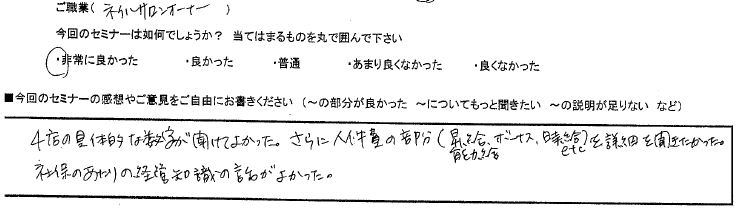 ご職業( ネイルサロンオーナー )
今回のセミナーは如何でしょうか? 当てはまるものを丸で囲んで下さい
・非常に良かった ・良かった ・普通 ・あまり良くなかった ・良くなかった
■今回のセミナーの感想やご意見をご自由にお書きください (~の部分が良かった ~についてもっと聞きたい ~の説明が足りない など)
4店の具体的な数字が聞けてよかった。さらに人件費の部分(昇給、ボーナス、日給)を詳細を聞きたかった。
能力給 etc
社保のあたりの経営知識の話がよかった。